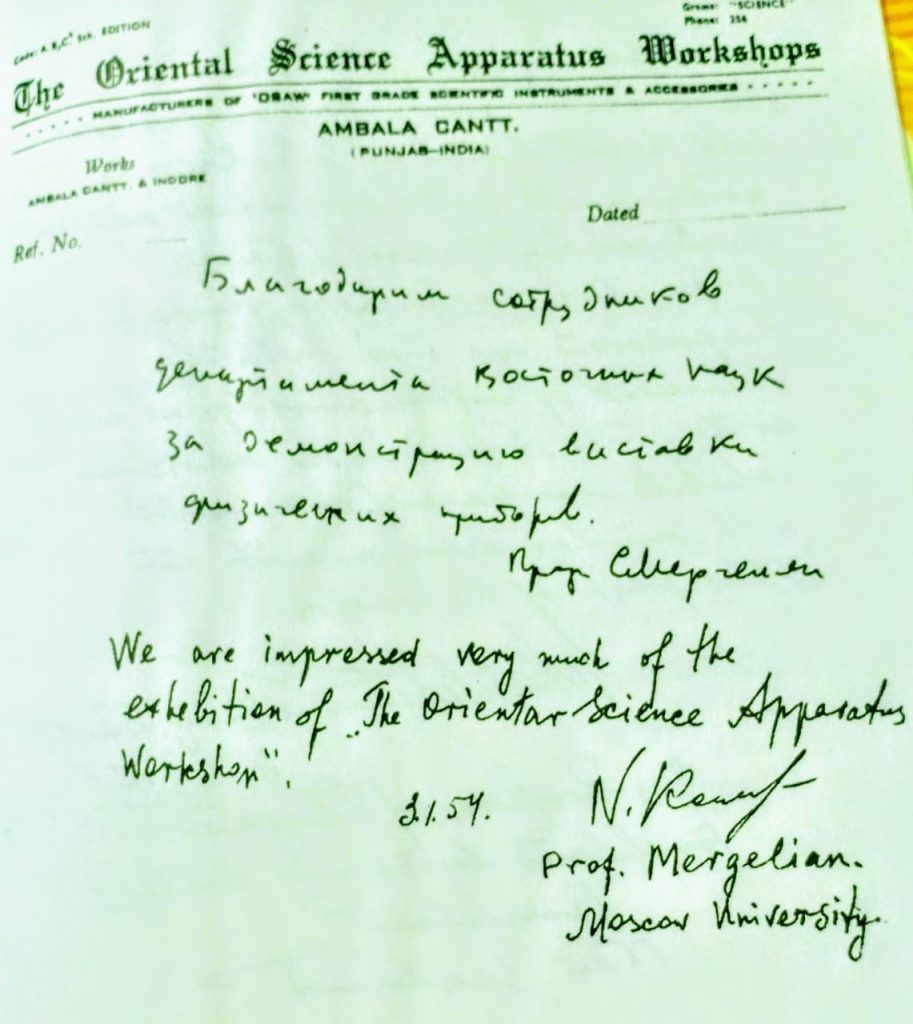 Code: A, B, C' 5th. EDITION
Grams: "SCIENCE"
Phone: 254
The Oriental Science Apparatus Workshops
MANUFACTURERS OF 'OSAW' FIRST GRADE SCIENTIFIC INSTRUMENTS & ACCESSORIES
AMBALA CANTT.
(PUNJAB-INDIA)
Works
AMBALA CANTT. & INDORE
Dated
Ref. No.
Благодарим сотрудников
департамента восточных наук
за демонстрацию выставки
физических приборов.
Проф. С. Мергелян
We are impressed very much of the
exhebition of „The Oriental Science Apparatus
Workshop".
3.1.54. N.
Prof. Mergelian.
Moscow University.